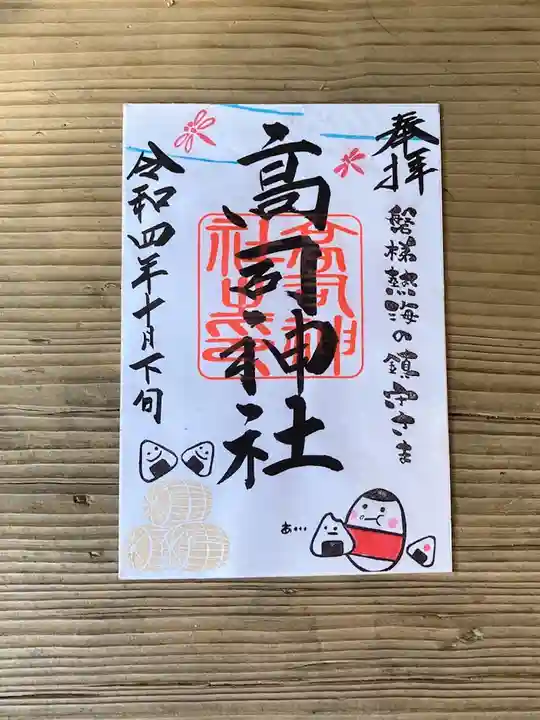 奉拝
磐梯熱海の鎮守さま
高司神社
令和四年十月下旬
あ…